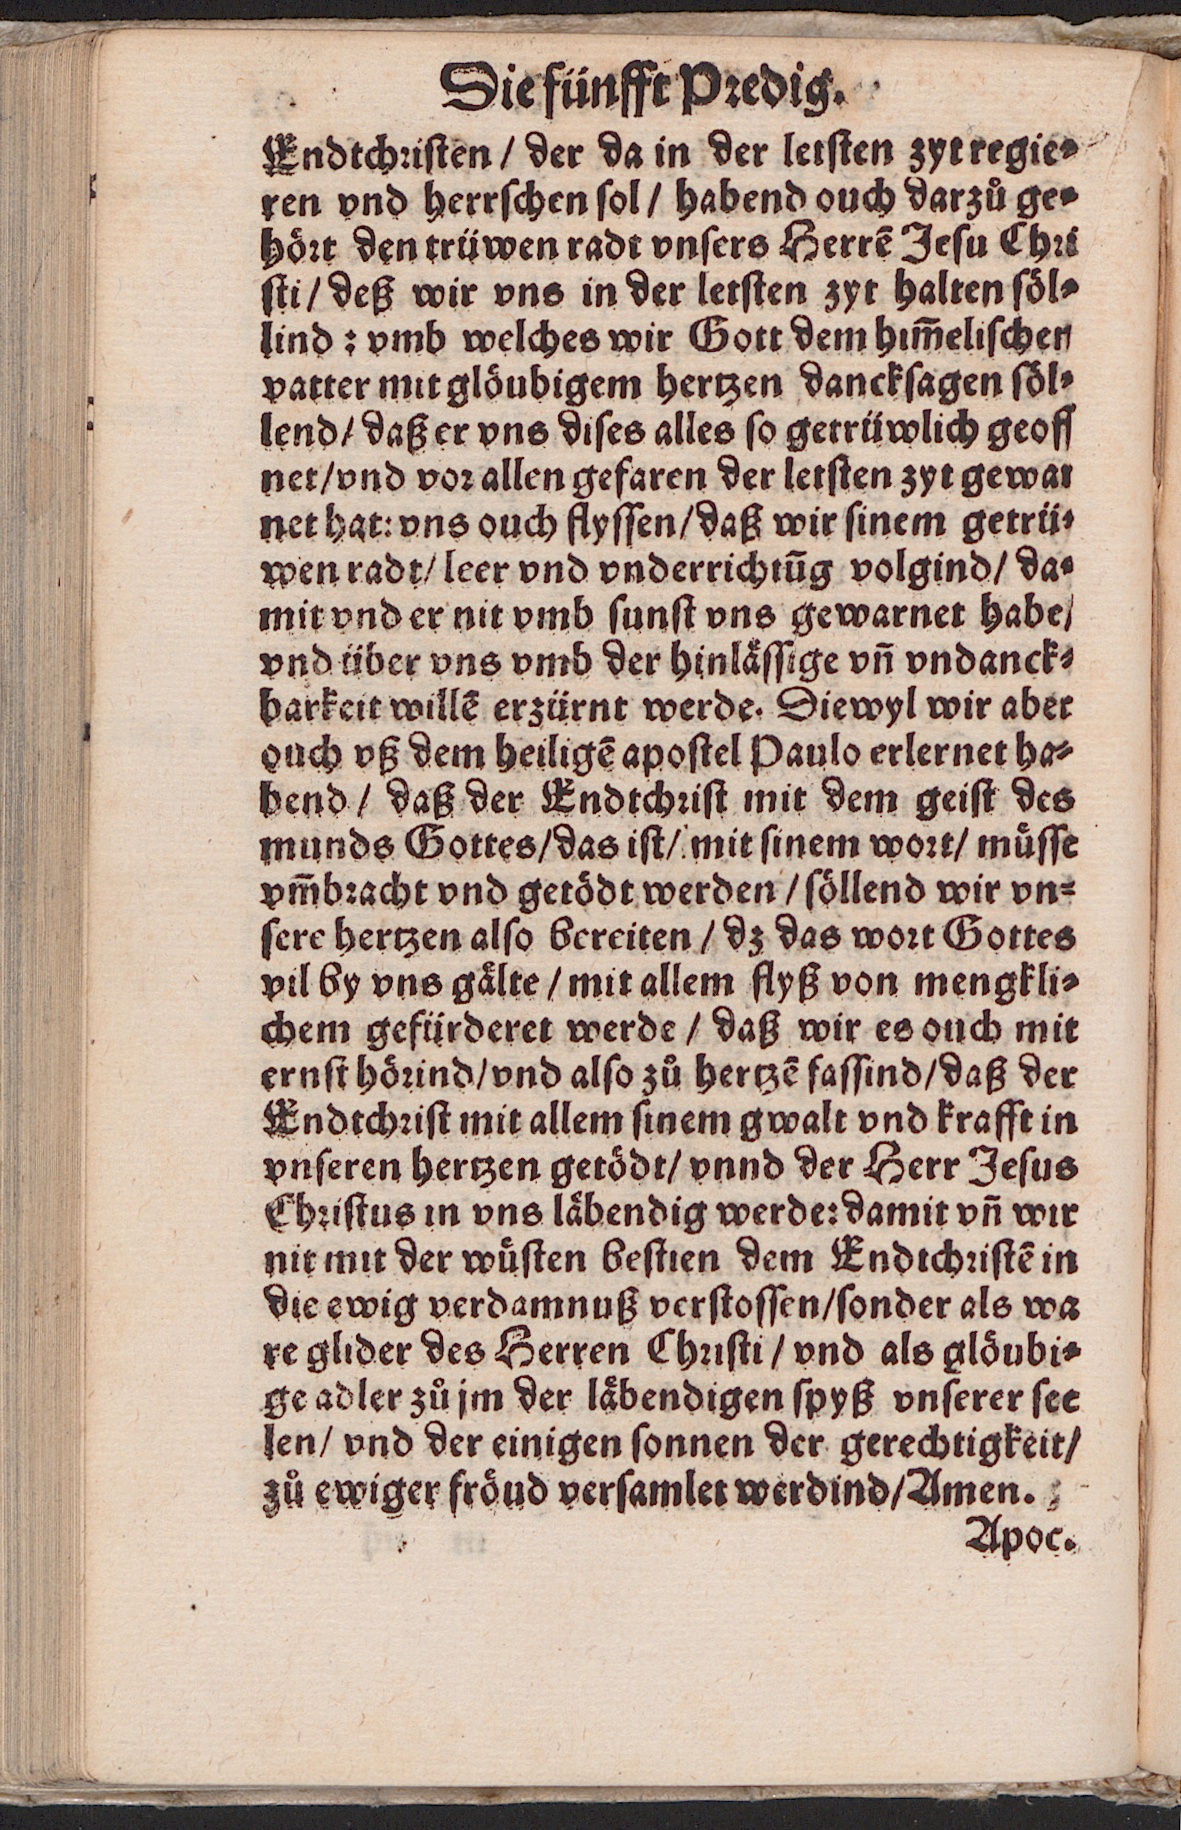 Die fünfft Predig.
Endtchristen / der da in der letsten zyt regie-
ren vnd herrschen sol / habend ouch darzů ge-
hört den trüwen radt vnsers Herrẽ Jesu Chri
sti / deß wir vns in der letsten zyt halten söl-
lind : vmb welches wir Gott dem him̃elischen
vatter mit glöubigem hertzen dancksagen söl-
lend / daß er vns dises alles so getrüwlich geoff
net / vnd vor allen gefaren der letsten zyt gewar
net hat: vns ouch flyssen / daß wir sinem getrü-
wen radt / leer vnd vnderrichtũg volgind / da-
mit vnd er nit vmb sunst vns gewarnet habe /
vnd über vns vmb der hinlässige vñ vndanck-
barkeit willẽ erzürnt werde. Diewyl wir aber
ouch vß dem heiligẽ apostel Paulo erlernet ha-
bend / daß der Endtchrist mit dem geist des
munds Gottes / das ist / mit sinem wort / müsse
vm̃bracht vnd getödt werden / söllend wir vn-
sere hertzen also bereiten / dz das wort Gottes
vil by vns gälte / mit allem flyß von mengkli-
chem gefürderet werde / daß wir es ouch mit
ernst hörind / vnd also zů hertzẽ fassind / daß der
Endtchrist mit allem sinem gwalt vnd krafft in
vnseren hertzen getödt / vnnd der Herr Jesus
Christus in vns läbendig werde: damit vñ wir
nit mit der wüsten bestien dem Endtchristẽ in
die ewig verdamnuß verstossen / sonder als wa
re glider des Herren Christi / vnd als glöubi-
ge adler zů jm der läbendigen spyß vnserer see
len / vnd der einigen sonnen der gerechtigkeit /
zů ewiger fröud versamlet werdind / Amen.
Apoc.